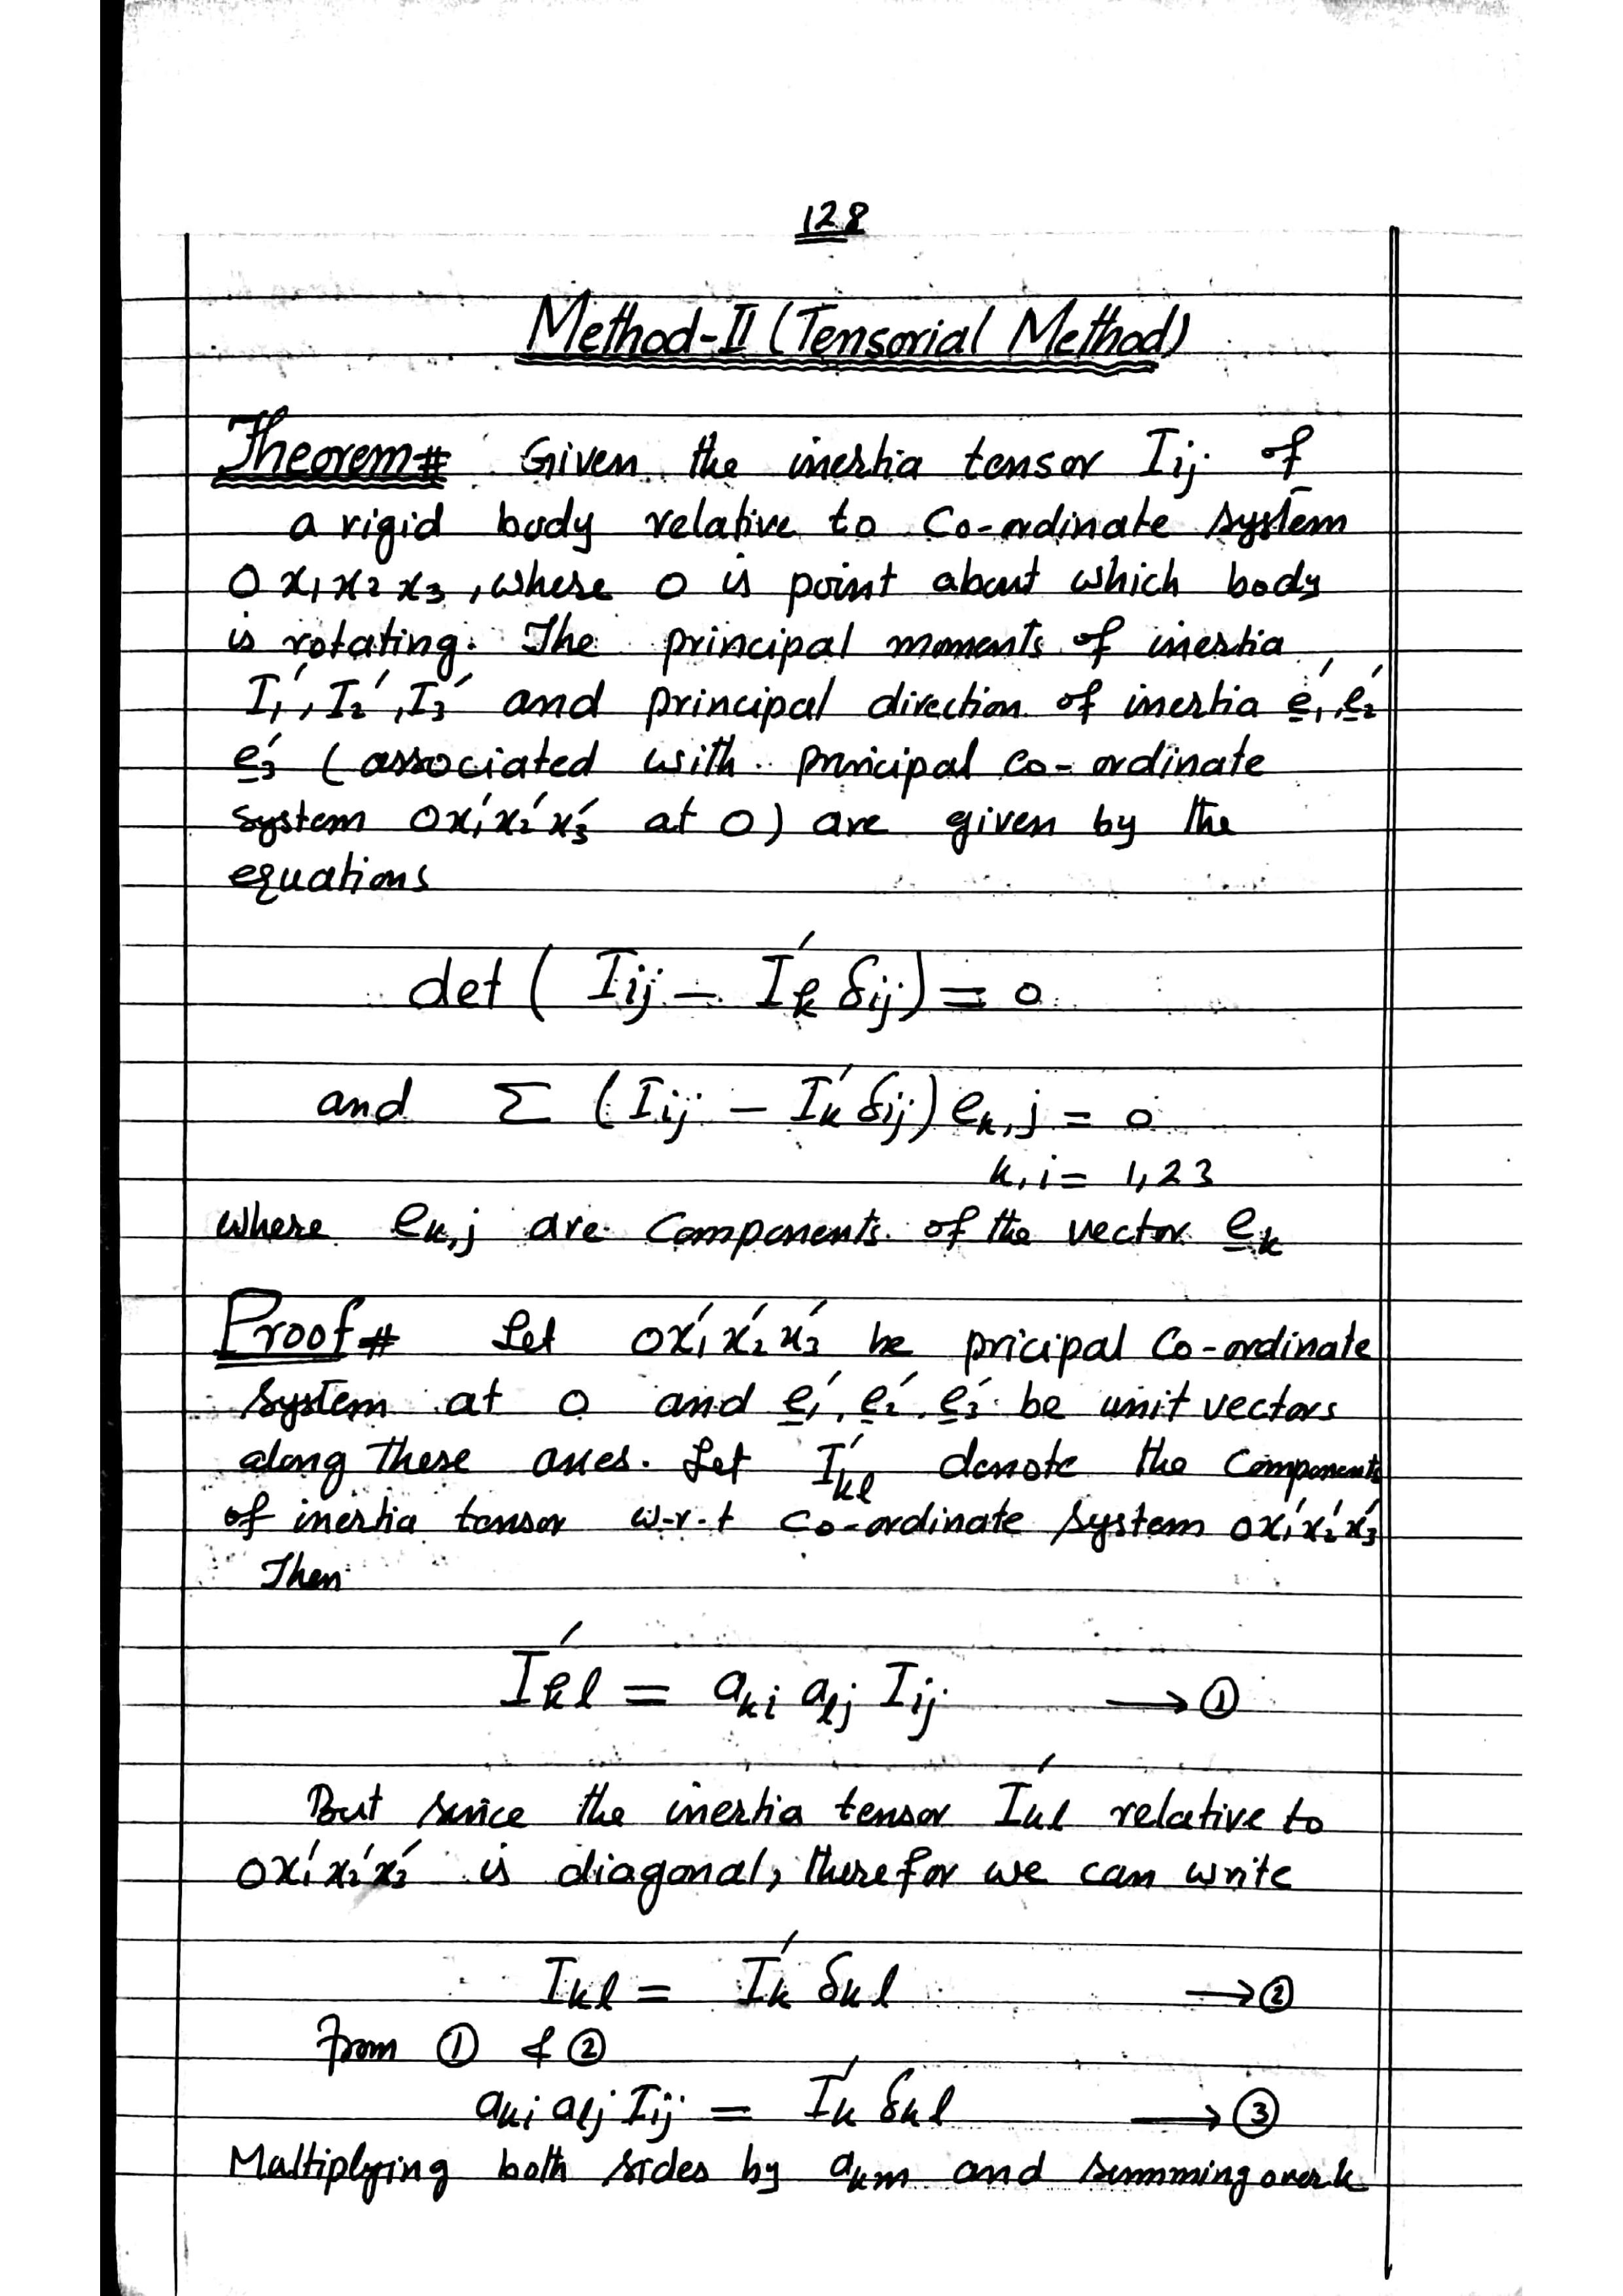 128
Method-II (Tensorial Method)
Theorem# Given the inertia tensor Iij of
a rigid body relative to Co-ordinate system
O x₁ x₂ x₃, where O is point about which body
is rotating. The principal moments of inertia
I₁', I₂', I₃' and principal direction of inertia e₁', e₂'
e₃' (associated with principal co-ordinate
system Ox₁'x₂'x₃' at O) are given by the
equations
det ( Iij – I'k δij) = 0
and Σ (Iij – I'k δij) ek,j = 0
k, i = 1,2 3
where ek,j are components of the vector ek
Proof# Let Ox₁'x₂'x₃' be pricipal Co-ordinate
system at O and e₁', e₂', e₃' be unit vectors
along these axes. Let I'kl denote the components
of inertia tensor w.r.t co-ordinate system Ox₁'x₂'x₃'
Then
I'kl = aki alj Iij → ①
But since the inertia tensor I'kl relative to
Ox₁'x₂'x₃' is diagonal, therefor we can write
Ikl = I'k δkl → ②
from ① & ②
aki alj Iij = I'k δkl → ③
Multiplying both sides by akm and summing over k